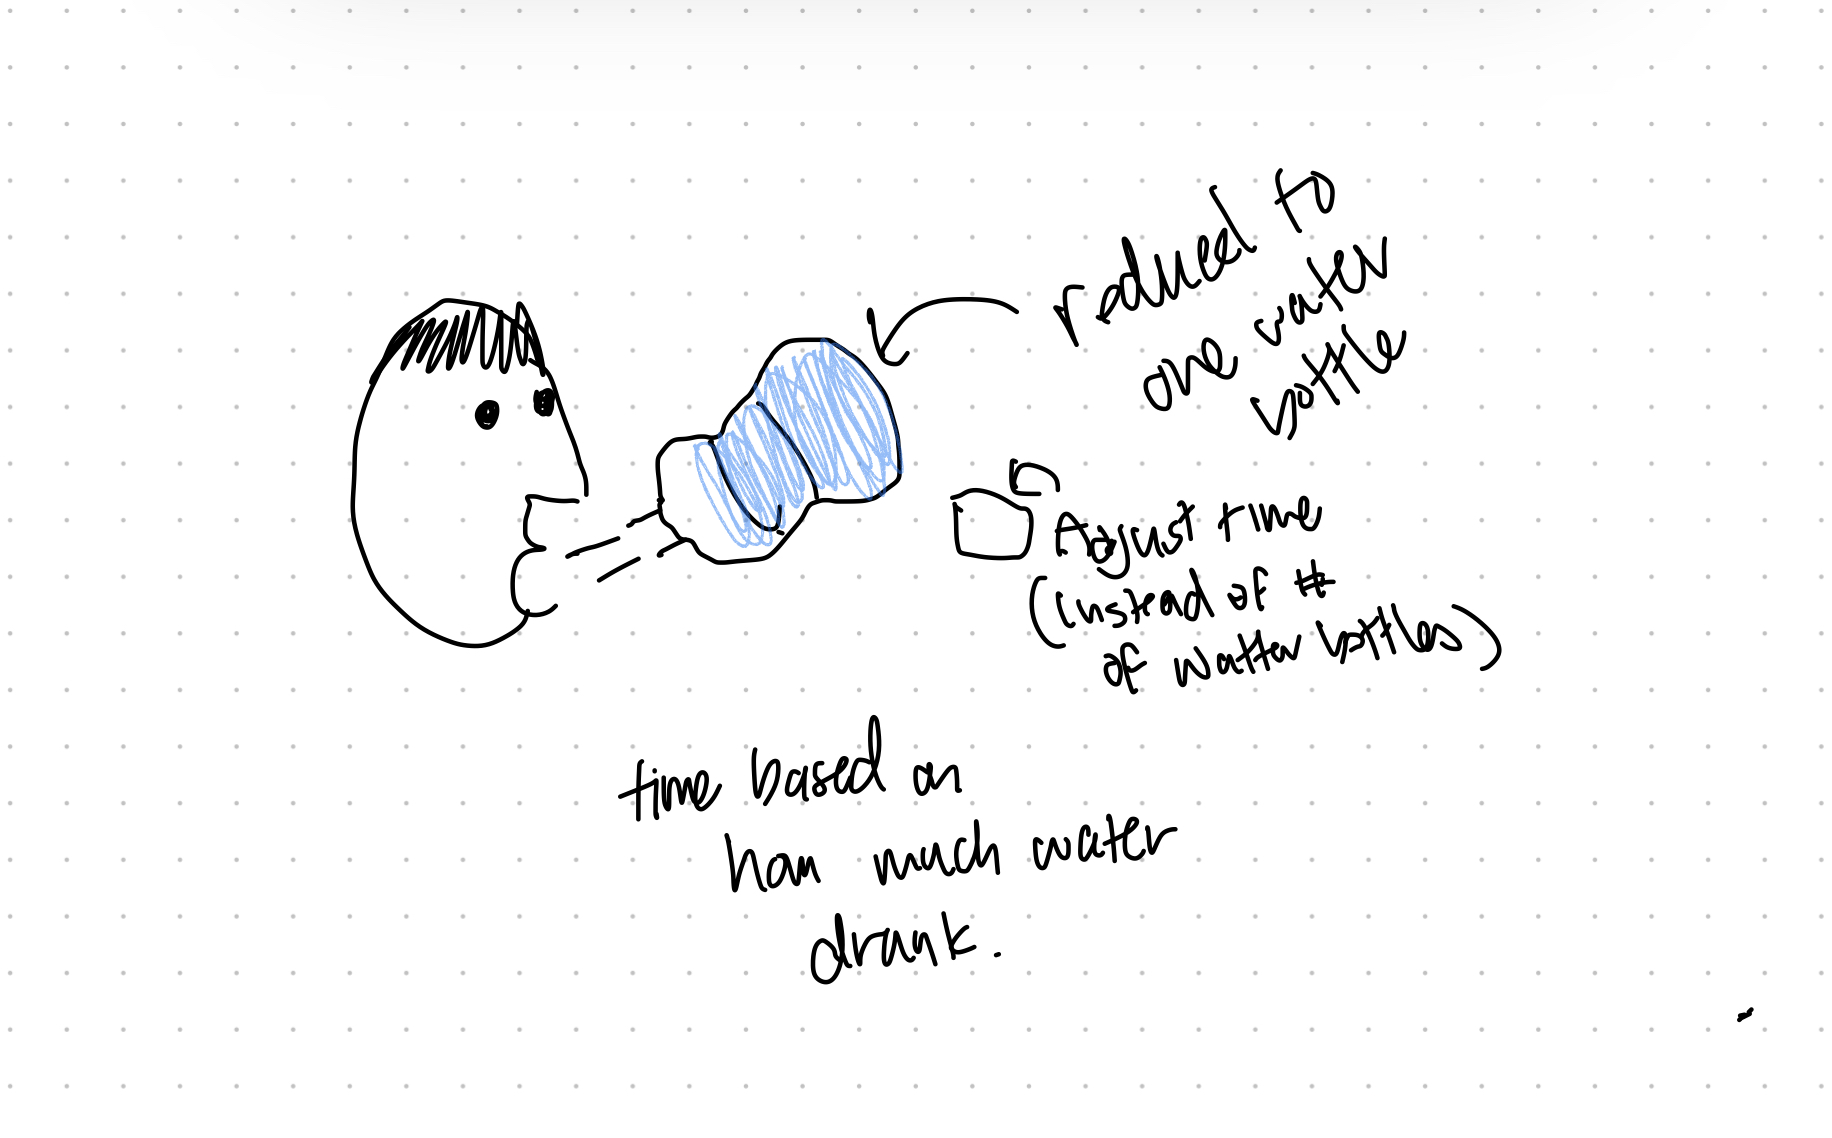 reduced to
one water
bottle
Adjust time
(instead of #
of watter bottles)
time based on
how much water
drank.